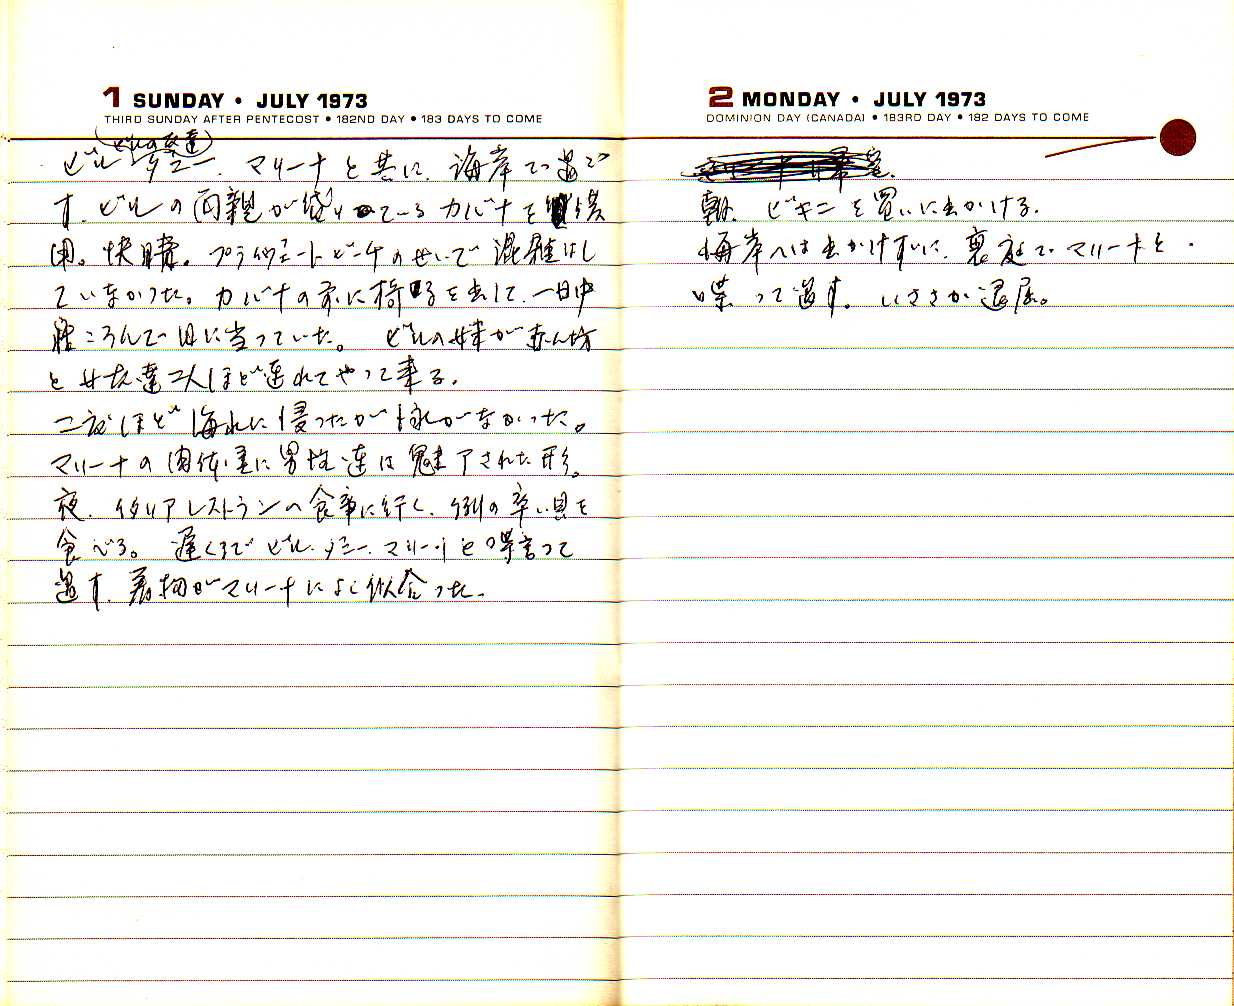 1 SUNDAY • JULY 1973
THIRD SUNDAY AFTER PENTECOST • 182ND DAY • 183 DAYS TO COME
(ビルの友達)
ビル、ダニー、マリーナと共に、海岸で過ご
す。ビルの両親が借りているカバナを使
用。快晴。プライヴェートビーチのせいで混雑はし
ていなかった。カバナの前に椅子を出して、一日中
寝ころんで日に当っていた。 ビルの妹が赤ん坊
と女友達二人ほど連れてやって来る。
二度ほど海水に浸ったが泳がなかった。
マリーナの肉体美に男性達は魅了された形。
夜、イタリアレストランへ食事に行く、例の辛い貝を
食べる。 遅くまでビル、ダニー、マリーナと喋って
過す。着物がマリーナによく似合った。
2 MONDAY • JULY 1973
DOMINION DAY (CANADA) • 183RD DAY • 182 DAYS TO COME
朝、ビキニを買いに出かける。
海岸へは出かけずに、裏庭でマリーナと
喋って過す。いささか退屈。